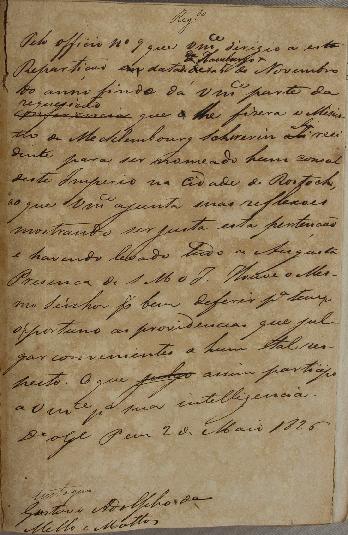 Reg.do
Pelo officio nº 9 que Vmce dirigio a esta
de Hamburgo
Repartição em data de de Novembro
do anno findo dá Vmce parte da
requesição
que lhe fizera o Minis
tro de Mecklembourg Schwerin ahi resi
dente para ser nomeado hum consul
deste Imperio na Cidade de Rostoch,
ao que Vmce ajunta suas reflexões
mostrando ser justa esta pertenção
e havendo levado tudo a Augusta
Presença de S M o I. Houve o Mes
mo Senhor por bem deferir pª temp
opportuno as providencias que jul
gar convenientes a hum tal res
peito. O que julgo assim participo
a Vmce pª sua intelligencia.
Ds gde P em 2 de Maio 1826
Gustavo Adolpho de
Mello e Mattos